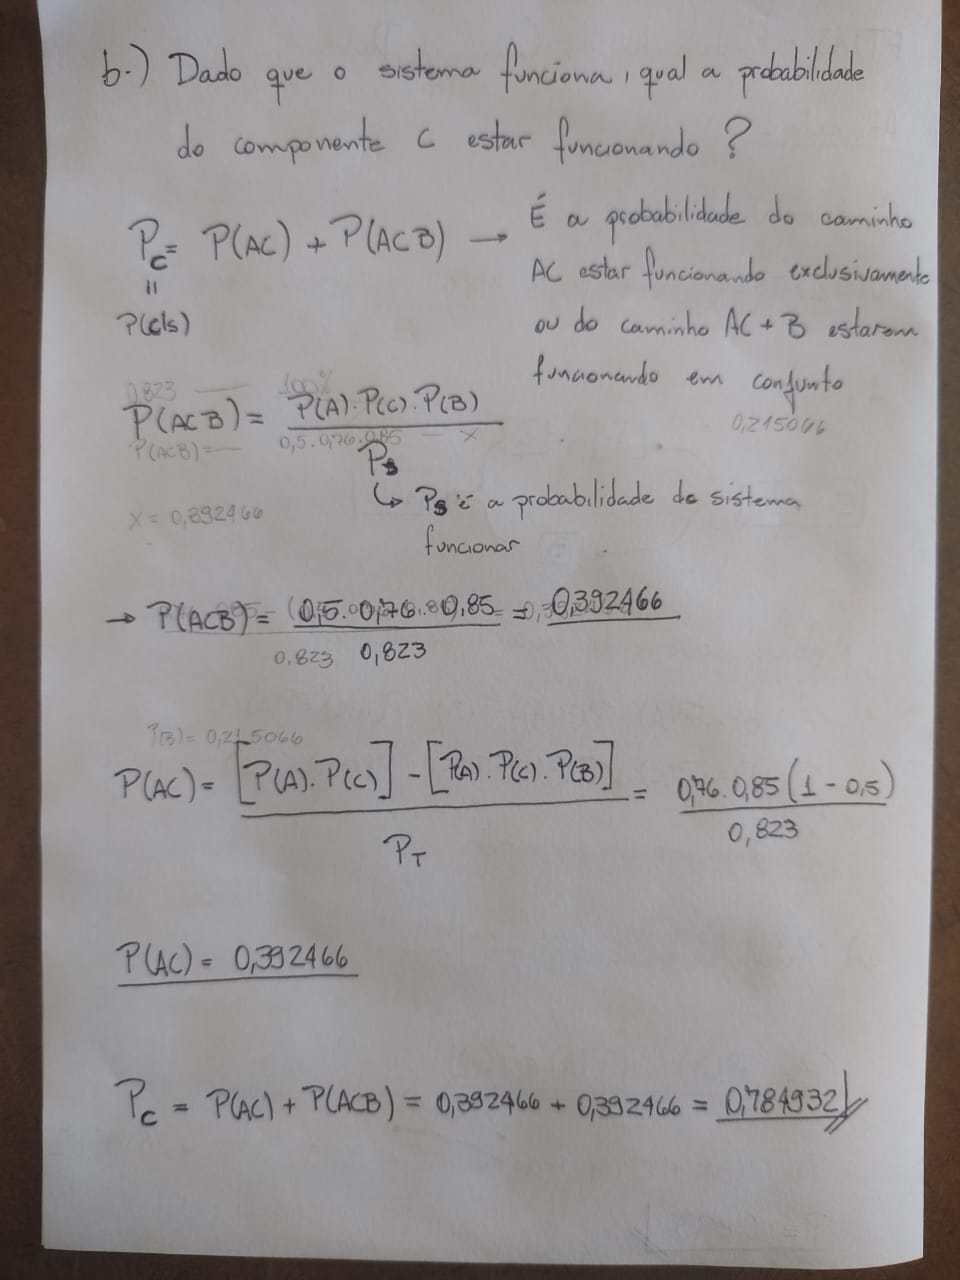 b-) Dado que o sistema funciona, qual a probabilidade
do componente C estar funcionando?
P_C = P(AC) + P(ACB) → É a probabilidade do caminho
AC estar funcionando exclusivamente
ou do caminho AC + B estarem
funcionando em conjunto
"
P(C|S)
0,823 — 100%
0,215066
P(ACB) = P(A).P(C).P(B) / P_S
P(ACB) = — 0,5.0,76.0,85 — x
↳ P_S é a probabilidade do sistema
funcionar
x = 0,392466
→ P(ACB) = 0,5.0,76.0,85 / 0,823 = 0,392466
0.823
P(B) = 0,215066
P(AC) = [P(A).P(C)] - [P(A).P(C).P(B)] / P_T = 0,76.0,85(1 - 0,5) / 0,823
P(AC) = 0,392466
P_C = P(AC) + P(ACB) = 0,392466 + 0,392466 = 0,784932